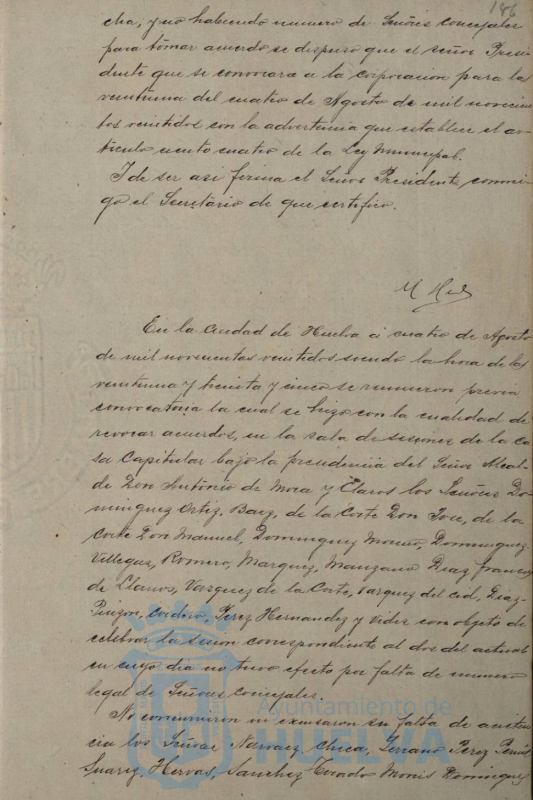 186
cha, y no habiendo numero de Señores Concejales
para tomar acuerdo se dispuso que el señor Presi-
dente que se convocara a la corporacion para las
veintiuna del cuatro de Agosto de mil novecien-
tos veintidos con la advertencia que establece el ar-
ticulo ciento cuatro de la Ley Municipal.
I de ser asi firma el Señor Presidente conmi-
go el Secretario de que certifico.
En la Ciudad de Huelva á cuatro de Agosto
de mil novecientos veintidos siendo la hora de las
veintiuna y treinta y cinco se reunieron previa
convocatoria la cual se hizo con la cualidad de
revocar acuerdos, en la sala de sesiones de la Ca-
sa Capitular bajo la presidencia del Señor Alcal-
de Don Antonio de Mora y Claros los Señores Do-
minguez Ortiz, Baez, de la Corte Don Jose, de la
Corte Don Manuel, Dominguez Moreno, Dominguez
Villegas, Romero, Marquez, Manzano Diaz, Franco
de Llanos, Vazquez de la Corte, Vazquez del Cid, Diaz
Pinzon, Cordero, Perez Hernandez y Vides con objeto de
celebrar la sesion correspondiente al dos del actual
en cuyo dia no tuvo efecto por falta de numero
legal de Señores Concejales.
No concurrieron ni excusaron su falta de asisten-
cia los Señores Narvaez, Checa, Serrano, Perez
Suarez, Hervas, Sanchez Tirado Monis Dominguez
Ayuntamiento de
HUELVA